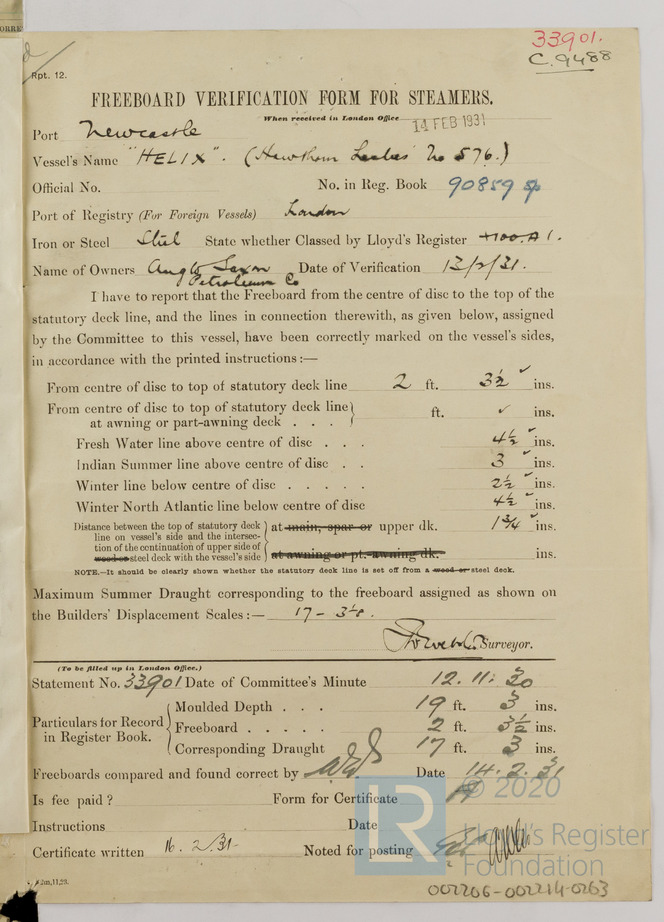 33901.
C.9488
Rpt. 12.
FREEBOARD VERIFICATION FORM FOR STEAMERS.
When received in London Office 14 FEB 1931
Port Newcastle
Vessel's Name "HELIX". (Hawthorn Leslies No 576.)
Official No. No. in Reg. Book 90859
Port of Registry (For Foreign Vessels) London
Iron or Steel Steel State whether Classed by Lloyd's Register +100.A1.
Name of Owners Anglo Saxon Date of Verification 13/2/31.
Petroleum Co
I have to report that the Freeboard from the centre of disc to the top of the
statutory deck line, and the lines in connection therewith, as given below, assigned
by the Committee to this vessel, have been correctly marked on the vessel's sides,
in accordance with the printed instructions :—
From centre of disc to top of statutory deck line 2 ft. 3½ ✓ ins.
From centre of disc to top of statutory deck line
at awning or part-awning deck . . . ft. ✓ ins.
Fresh Water line above centre of disc . . . 4½ ✓ ins.
Indian Summer line above centre of disc . . 3 ✓ ins.
Winter line below centre of disc . . . . . 2½ ✓ ins.
Winter North Atlantic line below centre of disc 4½ ✓ ins.
Distance between the top of statutory deck
line on vessel's side and the intersec-
tion of the continuation of upper side of
wood or steel deck with the vessel's side
at main, spar or upper dk. 1¾ ✓ ins.
at awning or pt.-awning dk. ins.
NOTE.—It should be clearly shown whether the statutory deck line is set off from a wood or steel deck.
Maximum Summer Draught corresponding to the freeboard assigned as shown on
the Builders' Displacement Scales :— 17 - 3⅛.
Surveyor.
(To be filled up in London Office.)
Statement No. 33901 Date of Committee's Minute 12.11.30
Particulars for Record
in Register Book.
Moulded Depth . . . 19 ft. 3 ins.
Freeboard . . . . . 2 ft. 3½ ins.
Corresponding Draught 17 ft. 3 ins.
Freeboards compared and found correct by Date 14.2.31
Is fee paid ? Form for Certificate
Instructions Date
Certificate written 16.2.31 Noted for posting
2m,11,29.
© 2020
LR
Lloyd's Register
Foundation
002206-002214-0263